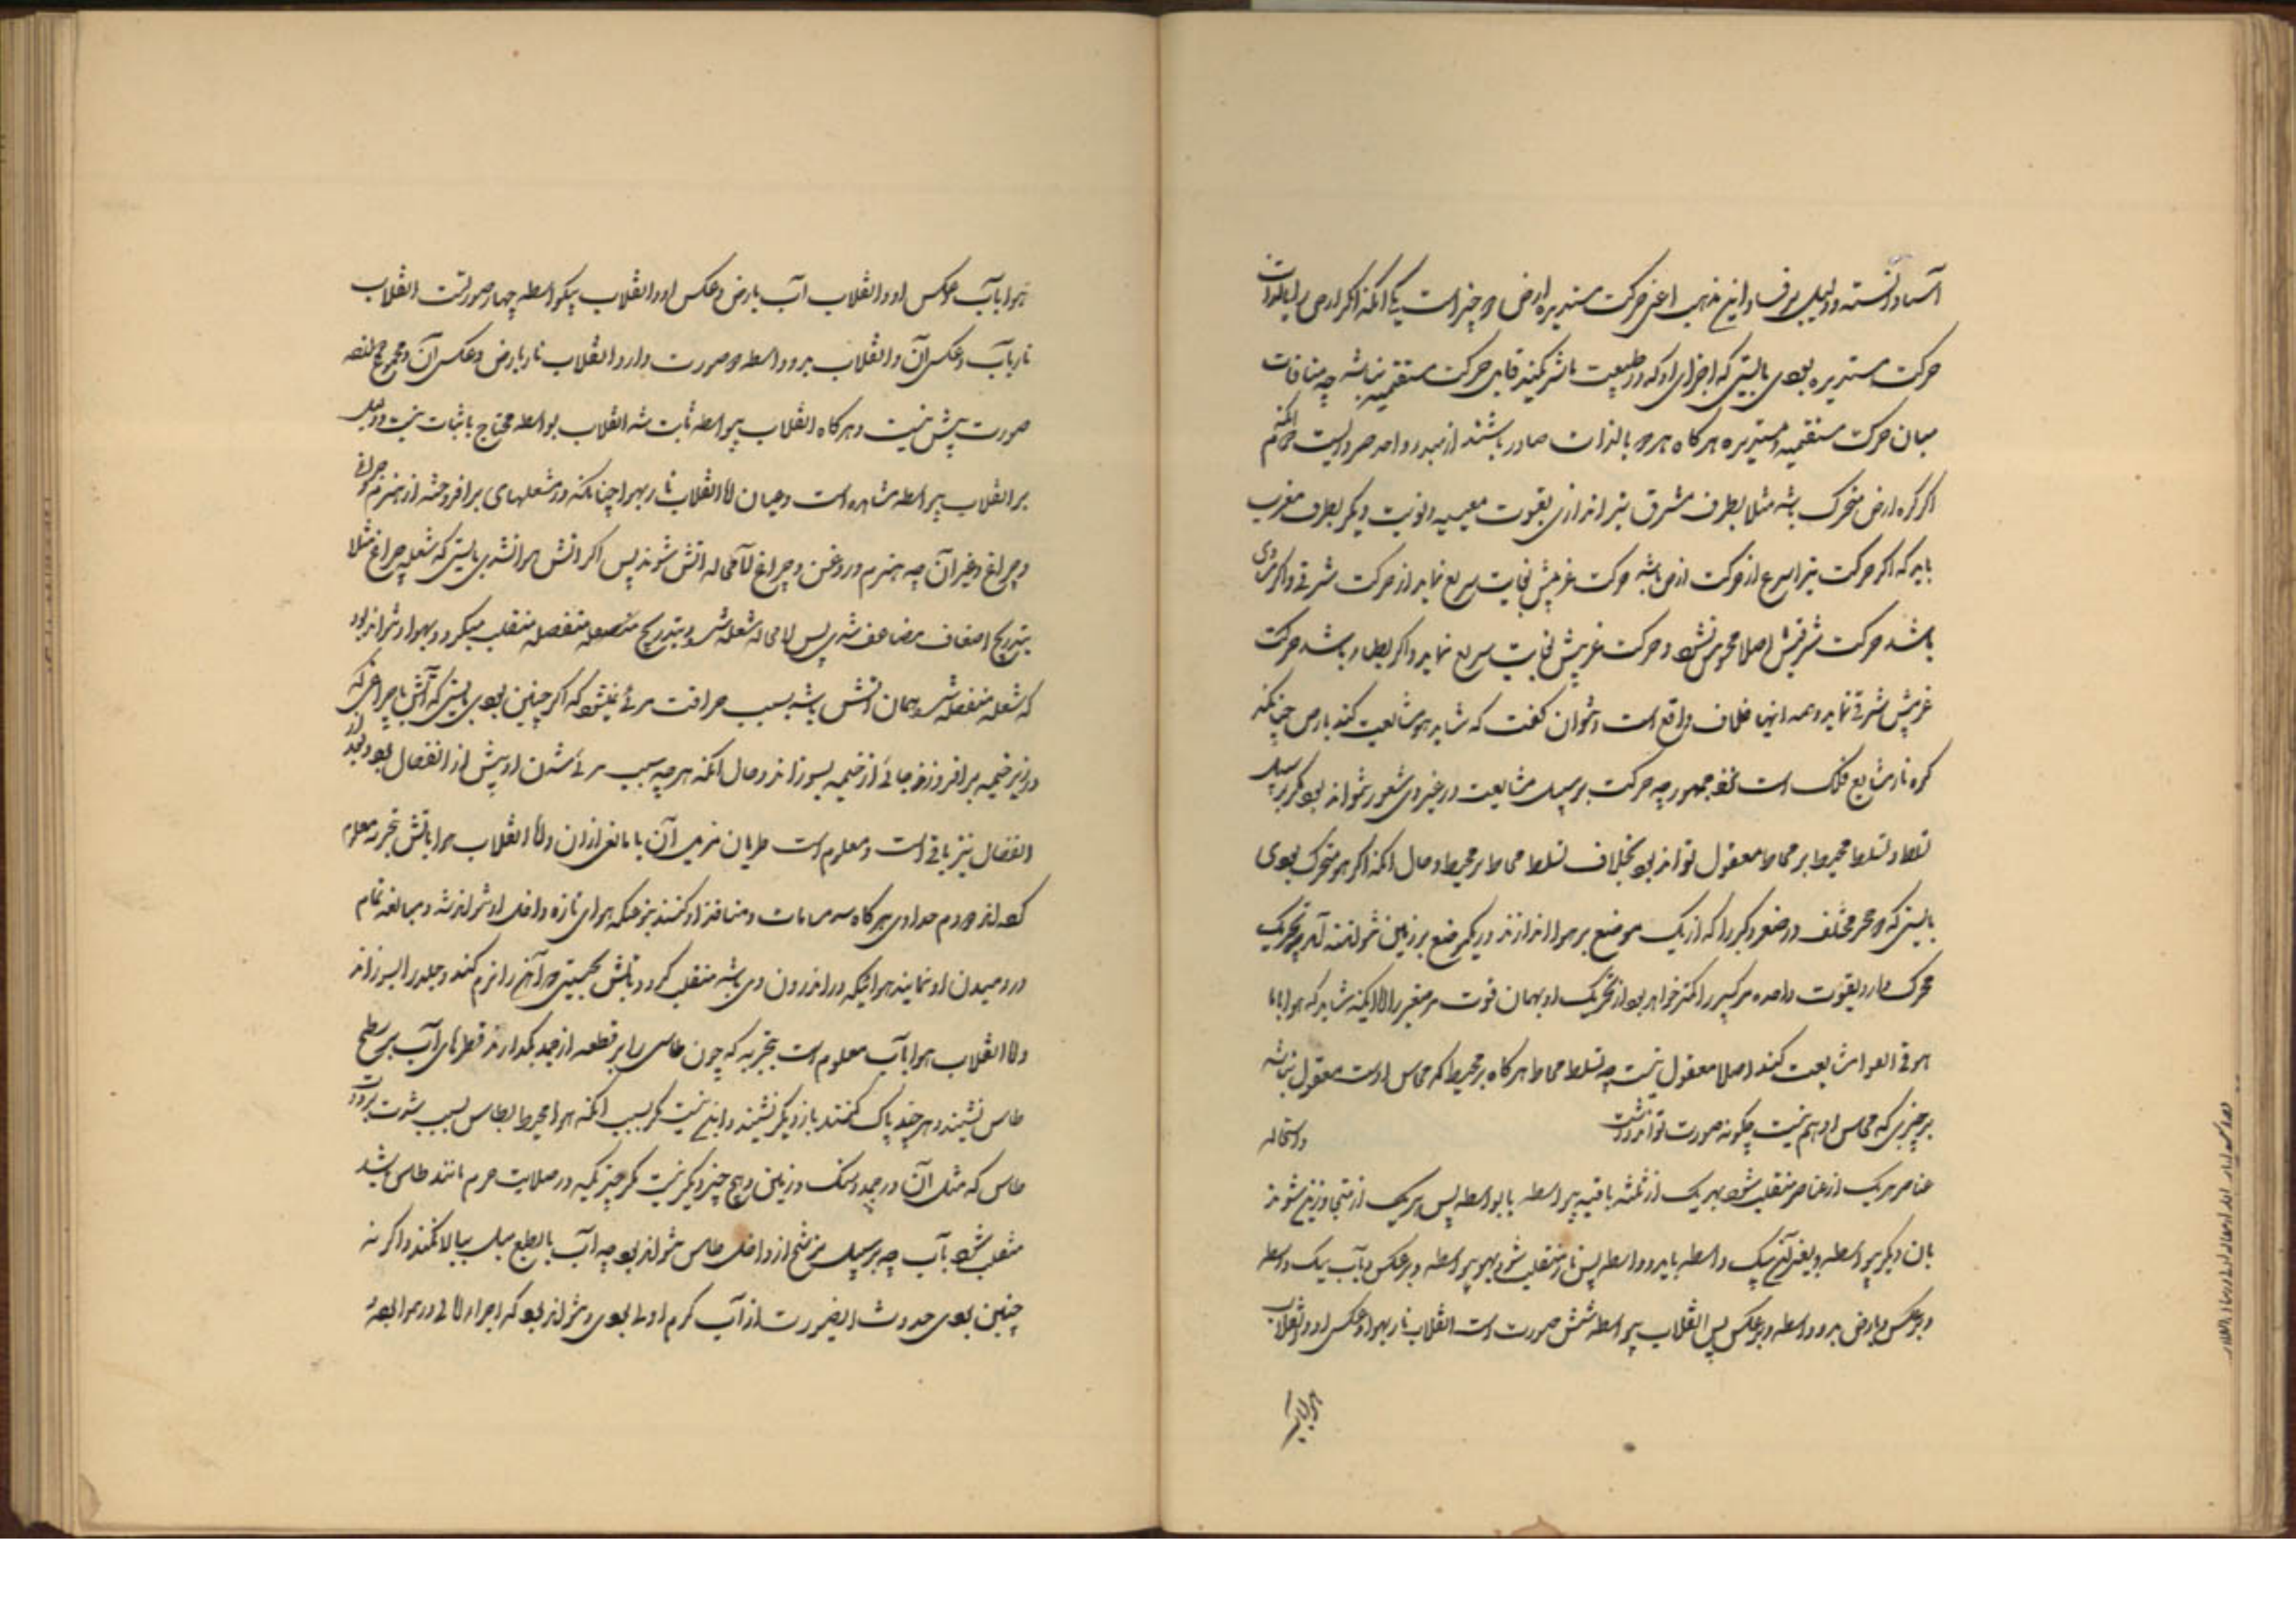 آسیاد دانسته و دلیل بر فساد این مذهب اعنی حرکت مستدیره ارض دو چیز است یکی آنکه اگر ارض را بالذات
حرکت مستدیره بودی بایستی که اجزای او که در طبیعت با شریکند قابل حرکت مستقیمه نباشد چه منافات
میان حرکت مستقیمه و مستدیره هرگاه هر دو بالذات صادر باشند از مبدء واحد ضروریست دوم آنکه
اگر کره ارض متحرک باشد مثلا بطرف مشرق تیر اندازی بقوت معینه و نوبت دیگر بطرف مغرب
باید که اگر حرکت تیر اسرع از حرکت ارض باشد حرکت غربیش بغایت سریع نماید از حرکت شرقی و اگر مساوی
باشد حرکت شرقیش اصلا محسوس نشود و حرکت غربیش بغایت سریع نماید و اگر بطیء باشد حرکت
غربیش شرقی نماید و همه اینها خلاف واقع است و نتوان گفت که شاید هوا مشایعت کند بارض چنانکه
کره نار مشایع فلک است نزد جمهور چه حرکت بر سبیل مشایعت در غیر ذی شعور نتواند بود مگر بر سبیل
تسلط و تسلط محیط بر محاط معقول تواند بود بخلاف تسلط محاط بر محیط و حال آنکه اگر هوا متحرک بودی
بایستی که دو حجر مختلف در صغر و کبر را که از یک موضع بر هوا اندازند در یک موضع بر زمین نتوانند آمد چه تحریک
محرک واحد بقوت واحده مر کبیر را کمتر خواهد بود از تحریک او بهمان قوت مر صغیر را الا اینکه شاید که هوا با ما
هو فی الهوا مشایعت کند اصلا معقول نیست چه تسلط محاط هرگاه بر محیط که مماس اوست معقول نباشد
بر چیزی که مماس او هم نیست چگونه صورت تواند داشت و استحاله
عناصر هر یک از عناصر منقلب شود بهر یک از ثلثه باقیه بیواسطه یا بواسطه پس هر یک از متجاورین شوند
بآن دیگر بیواسطه و بغیر آن بیک واسطه یا بدو واسطه پس نار منقلب شود بهوا بیواسطه و بر عکس و بآب بیک واسطه
و بر عکس و بارض بدو واسطه و بر عکس پس انقلاب بیواسطه شش صورت است انقلاب نار بهوا و عکس او و انقلاب
هوا بآب و عکس او و انقلاب آب بارض و عکس او و انقلاب بیکواسطه چهار صورتست انقلاب
نار بآب و عکس آن و انقلاب بدو واسطه دو صورت دارد انقلاب نار بارض و عکس آن و مجموع
صورت بیش نیست و هرگاه انقلاب بیواسطه ثابت شد انقلاب بواسطه محتاج باثبات نیست و دلیل
بر انقلاب بیواسطه مشاهده است و عیان اما انقلاب نار بهوا چنانکه در شعلهای برافروخته از هیزم
و چراغ و غیر آن چه هیزم و روغن و چراغ لامحاله آتش شوند پس اگر آتش هوا نشدی بایستی که شعله چراغ مثلا
بتدریج اضعاف مضاعف شدی پس لامحاله شعله بتدریج منفصله منقلب میگردد بهوا و نتواند بود
که شعله منفصله همان آتش باشد بسبب مرئی نمیشود که اگر چنین بودی بایستی که آتش یا چراغی که
در زیر خیمه برافروزند جائی از خیمه بسوزاند و حال آنکه هر چه سبب مرئی شدن او پیش از انفصال بود
انفصال نیز باقی است و معلوم است و اما انقلاب هوا بآتش بتجربه معلوم
کرده‌اند در دم حدادی هرگاه و منافذ او کنند بحیثیکه هوای تازه داخل او نتواند شد و مبالغه تمام
در دمیدن او نمایند هوائیکه در اندرون وی باشد منقلب گردد بآتش بحیثیتی که آهن را نرم کند و جلد را بسوزاند
و اما انقلاب هوا بآب معلوم است بتجربه که چون طاسی را بر قطعه از جمد بگذارند قطرهای آب بر سطح
طاس نشیند و هر چند پاک کنند باز دیگر نشیند و این نیست مگر بسبب آنکه هوا محیط بطاس بسبب شدت برودت
طاس که مثل آن در جمد و سنگ و زمین و هیچ چیز دیگر نیست مگر چیزیکه در صلابت جرم مانند طاس باشد
منقلب شود بآب چه بر سبیل ترشح از داخل طاس نتواند بود چه آب بالطبع میل ببالا نکند و اگر نه
چنین بودی حدوث اینصورت از آب گرم اولی بودی و نتواند بود که اجزاء مائی در هوا بوده
هوا بآب